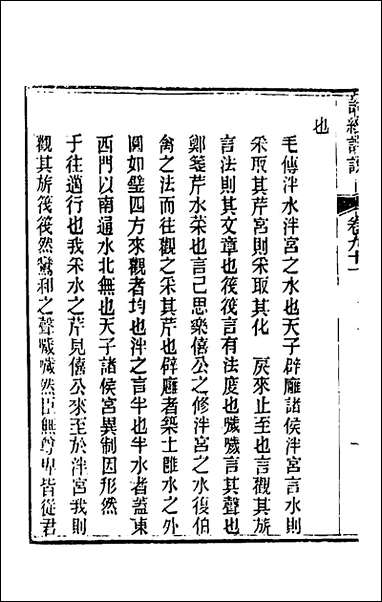 詩經詳說
卷九十一
也
毛傳泮水泮宮之水也天子辟廱諸侯泮宮言水則
采取其芹宮則采取其化 戾來止至也言觀其旂
言法則其文章也筏筏言有法度也噦噦言其聲也
鄭箋芹水菜也言己思樂僖公之修泮宮之水復伯
禽之法而往觀之采其芹也辟廱者築土雝水之外
圓如璧四方來觀者均也泮之言半也半水者蓋東
西門以南通水北無也天子諸侯宮異制因形然
于往邁行也我采水之芹見僖公來至於泮宮我則
觀其旂筏筏然鸞和之聲噦噦然臣無尊卑皆從君